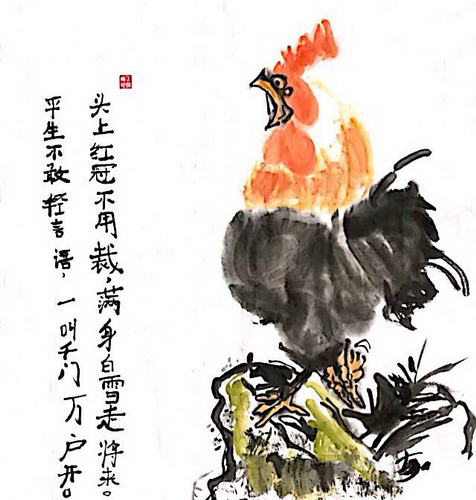 头上红冠不用裁，满身白雪走将来。
平生不敢轻言语，一叫千门万户开。